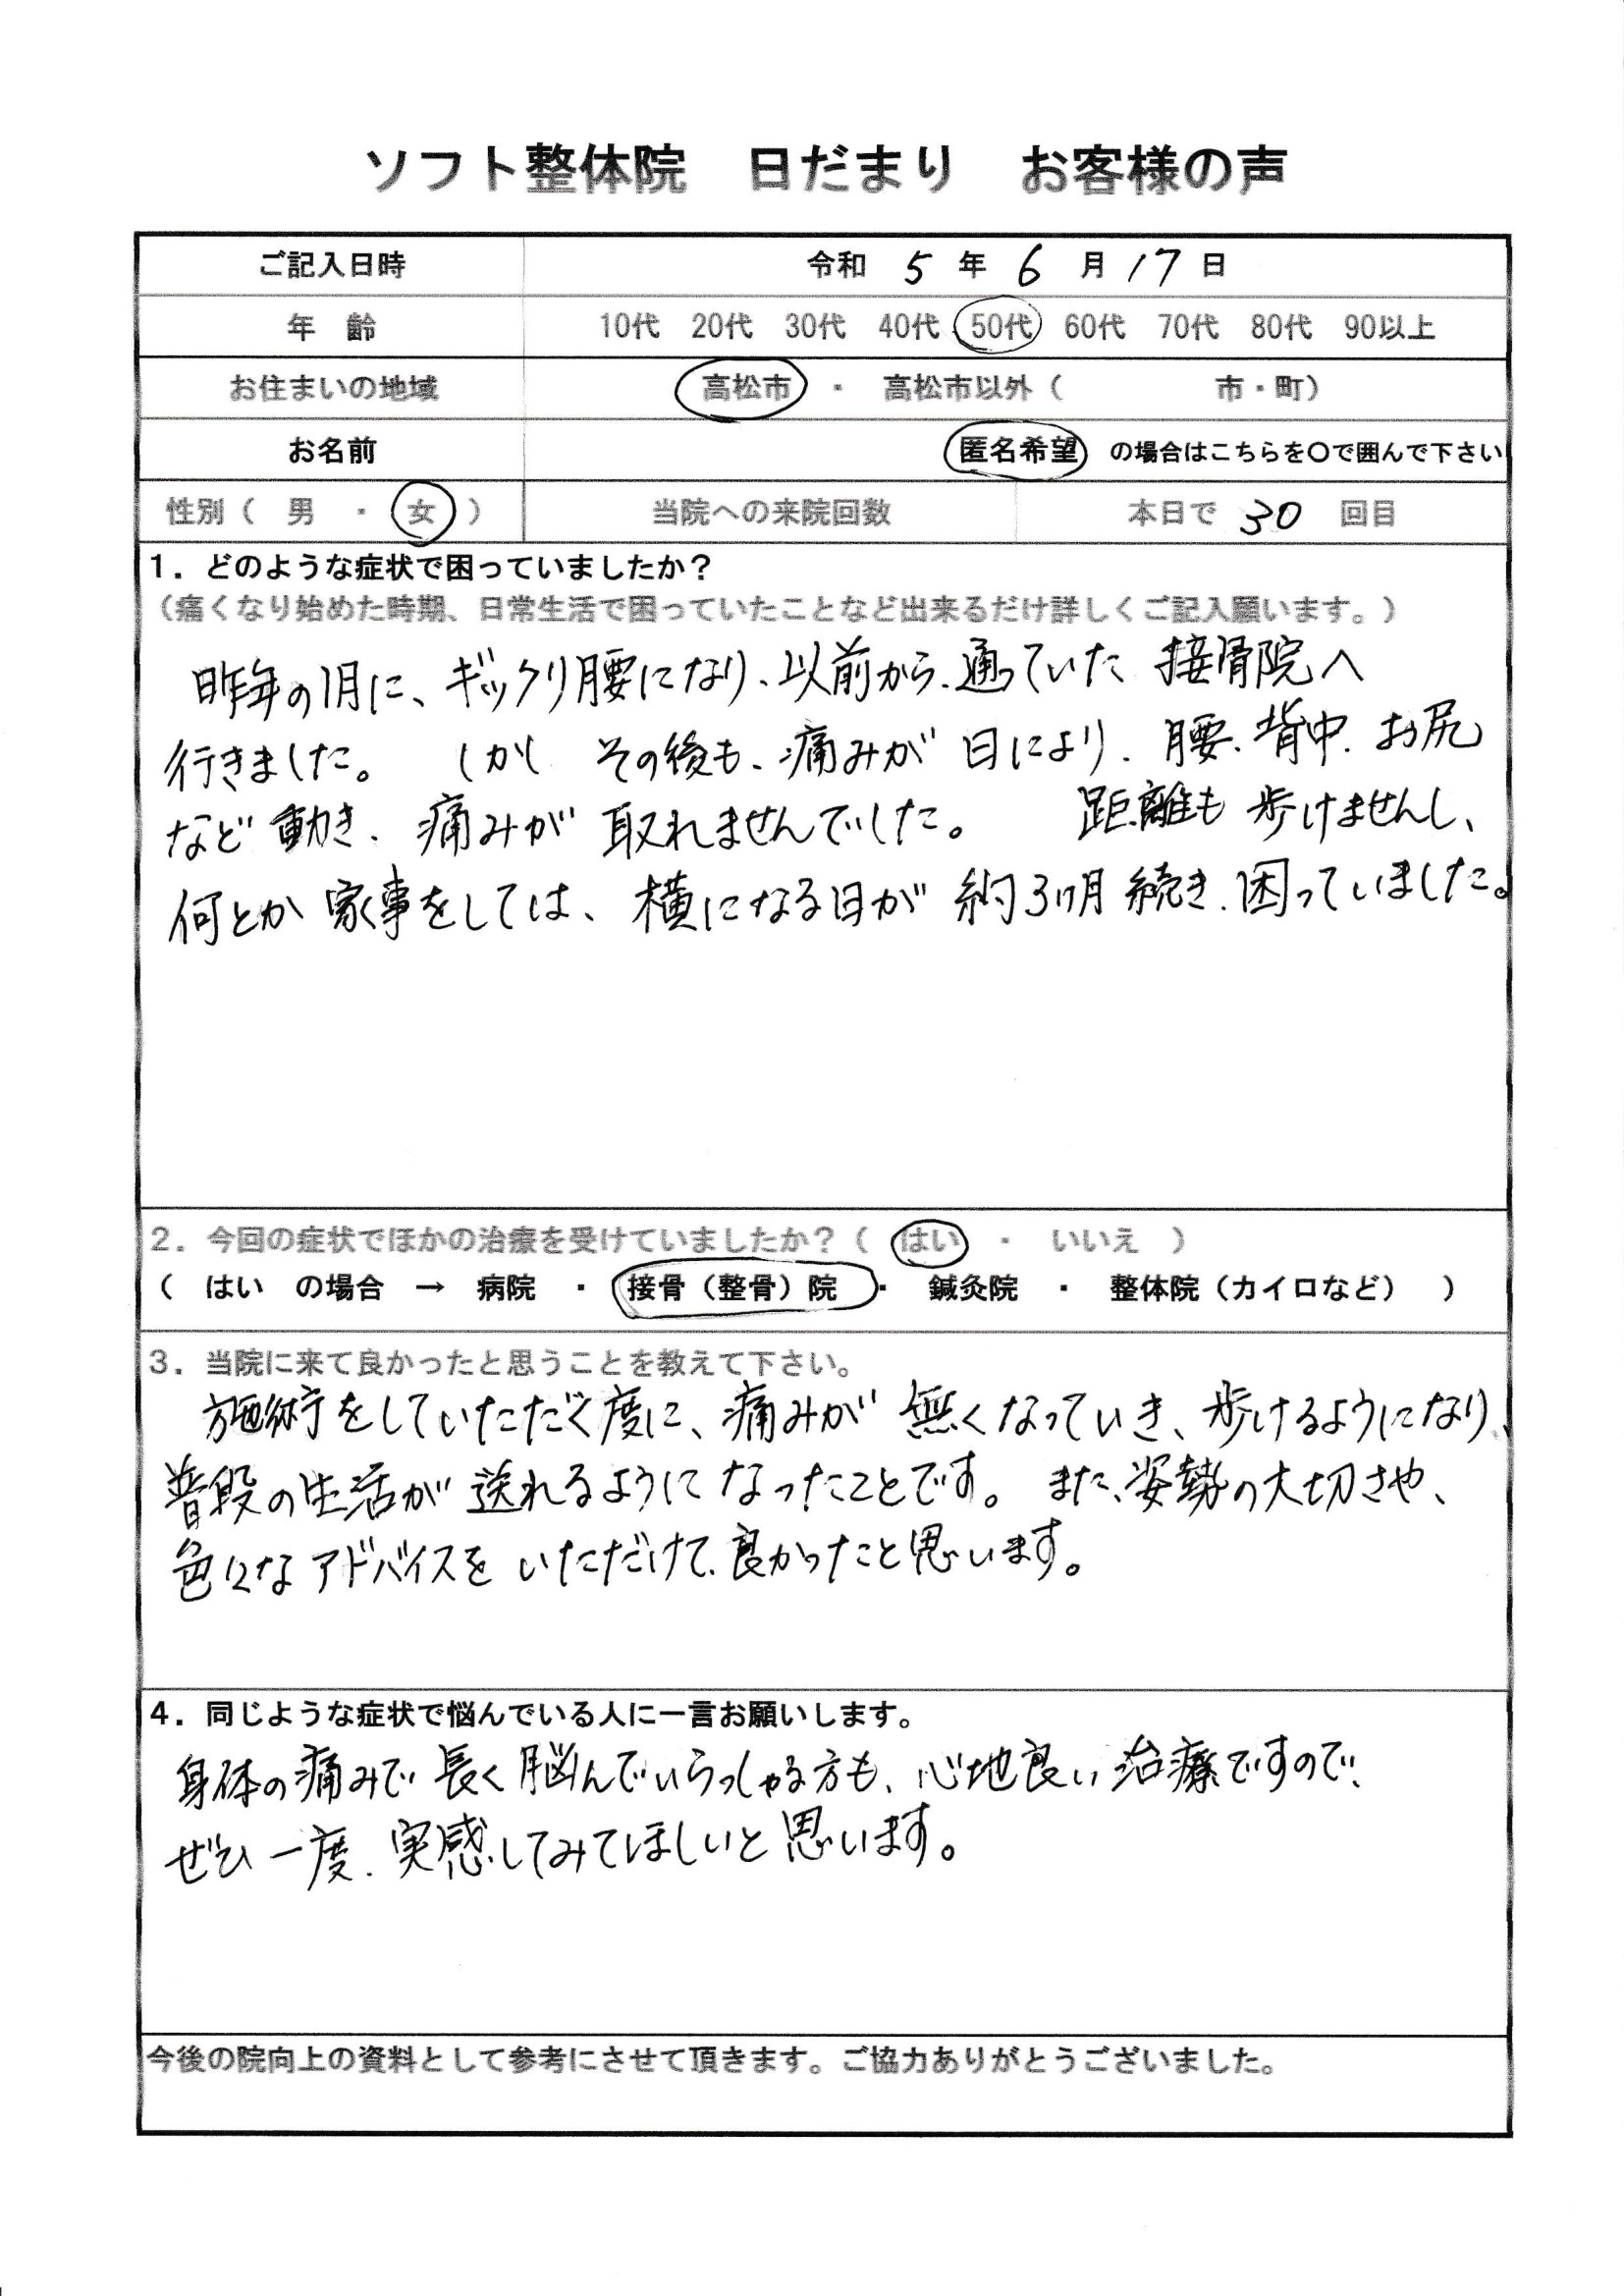 ソフト整体院　日だまり　お客様の声
ご記入日時　令和 5 年 6 月 17 日
年　齢　10代　20代　30代　40代　50代　60代　70代　80代　90以上
お住まいの地域　高松市　・　高松市以外（　　　　　市・町）
お名前　匿名希望　の場合はこちらを〇で囲んで下さい
性別（　男　・　女　）　当院への来院回数　本日で 30 回目
1．どのような症状で困っていましたか？
（痛くなり始めた時期、日常生活で困っていたことなど出来るだけ詳しくご記入願います。）
昨年の1月に、ギックリ腰になり、以前から、通っていた 接骨院へ
行きました。　しかし その後も、痛みが 日により、腰、背中、お尻
など動き、痛みが 取れませんでした。　距離も 歩けませんし、
何とか 家事をしては、横になる日が 約3ヶ月 続き、困っていました。
2．今回の症状でほかの治療を受けていましたか？（　はい　・　いいえ　）
（　はい　の場合　→　病院　・　接骨（整骨）院　・　鍼灸院　・　整体院（カイロなど）　）
3．当院に来て良かったと思うことを教えて下さい。
施術をしていただく度に、痛みが 無くなっていき、歩けるようになり、
普段の生活が 送れるように なったことです。 また、姿勢の大切さや、
色々なアドバイスを いただけて、良かったと思います。
4．同じような症状で悩んでいる人に一言お願いします。
身体の痛みで 長く 脳んでいらっしゃる方も、心地良い 治療ですので、
ぜひ 一度、実感してみてほしいと 思います。
今後の院向上の資料として参考にさせて頂きます。ご協力ありがとうございました。